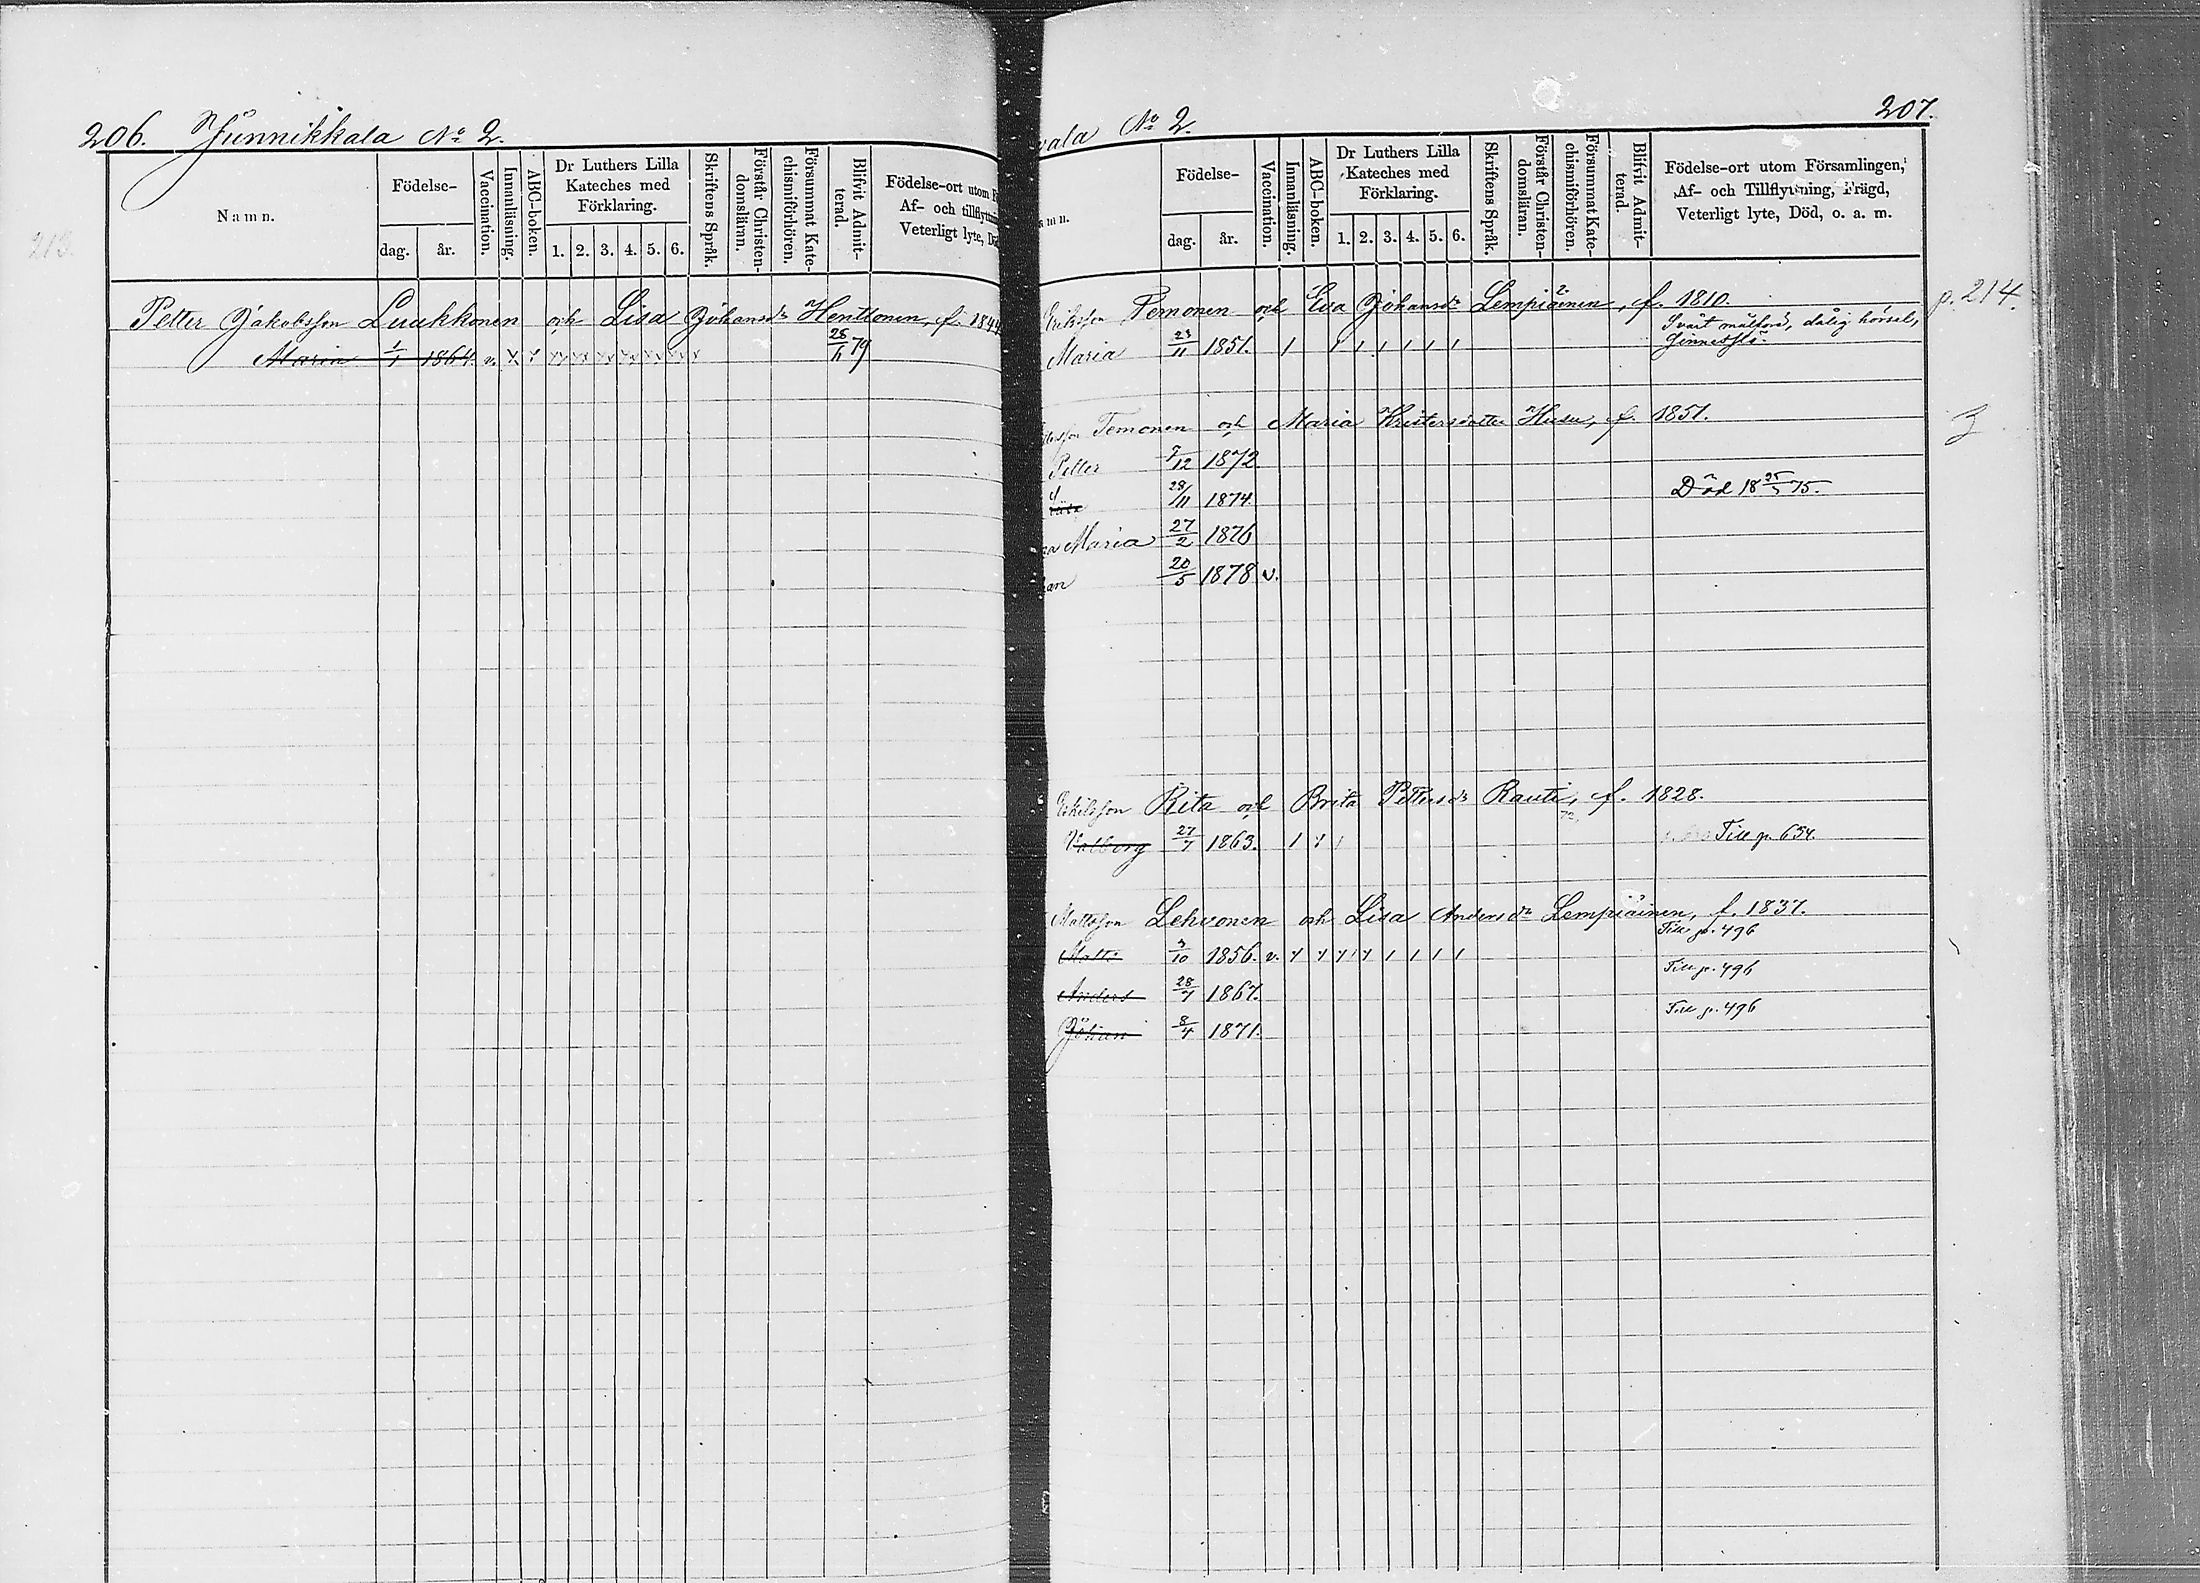 206. Junnikkala No 2.
Namn.
Födelse-
dag. år.
Vaccination.
Innanläsning.
ABC-boken.
Dr Luthers Lilla
Kateches med
Förklaring.
1. 2. 3. 4. 5. 6.
Skriftens Språk.
Förstår Christen-
domsläran.
Försummat Kate-
chismiförhören.
Blifvit Admit-
terad.
Födelse-ort utom
Af- och tillflyttnin
Veterligt lyte,
213.
Petter Jakobsson Luukkonen och Lisa Johansdr Henttonen, f. 1844
Maria 1/1 1864. v. 28/11 79
vala No 2. 207.
amn.
Födelse-
dag. år.
Vaccination.
Innanläsning.
ABC-boken.
Dr Luthers Lilla
Kateches med
Förklaring.
1. 2. 3. 4. 5. 6.
Skriftens Språk.
Förstår Christen-
domsläran.
Försummat Kate-
chismiförhören.
Blifvit Admit-
terad.
Födelse-ort utom Församlingen,
Af- och Tillflyttning, Frägd,
Veterligt lyte, Död, o. a. m.
Eriksson Temonen och Eva Johansdr Lempiäinen, f. 1810. p. 214.
Svårt målförd, dålig hörsel,
Maria 23/11 1851. Sinnesslö.
Temonen och Maria Kristersdotter Husu, f. 1851.
Petter 9/12 1872
28/11 1874. Död 18 25/5 75.
Maria 27/2 1876
han 20/5 1878 v.
Eskilsson Rita och Brita Pettersdr Rauti, f. 1828.
Valborg 27/7 1863. Till p. 654.
Mattsson Lehvonen och Lisa Andersdr Lempiäinen, f. 1837.
Till p. 496
Matts 3/10 1856. v.
Till p. 496
Anders 28/7 1867.
Till p. 496
Johan 8/4 1871.